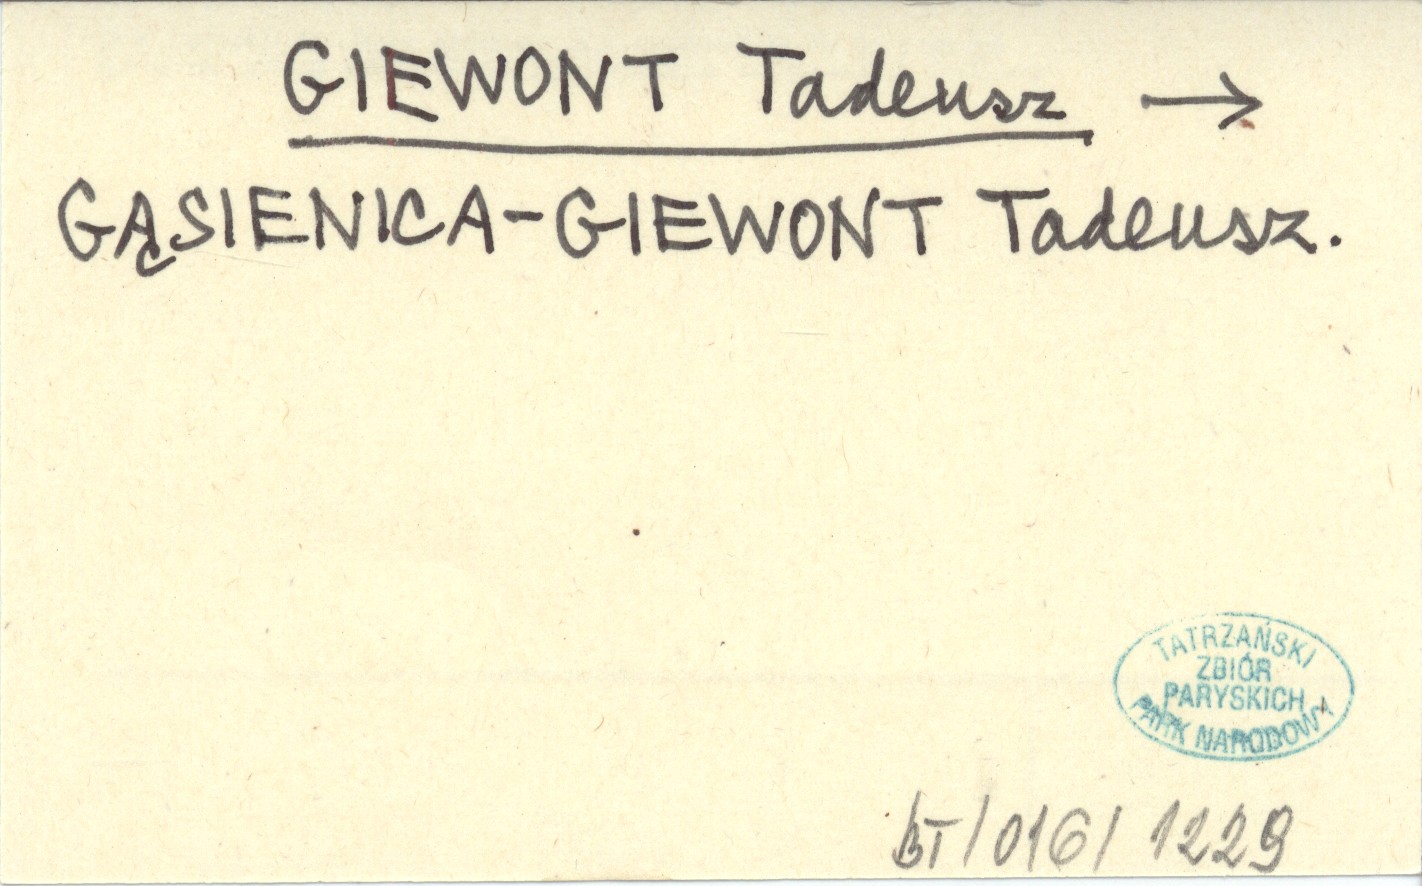 GIEWONT Tadeusz →
GĄSIENICA-GIEWONT Tadeusz.
TATRZAŃSKI
ZBIÓR
PARYSKICH
PARK NARODOWY
BT/016/1229